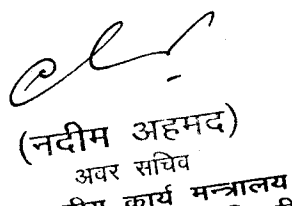 (नदीम अहमद)
अवर सचिव
कार्य मन्त्रालय